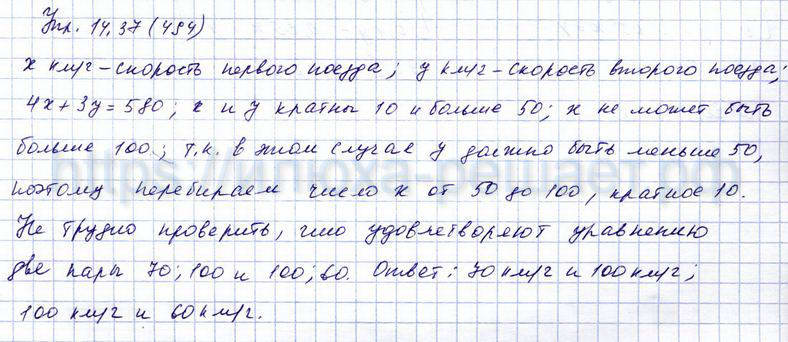 Упр. 14.37 (494)
х км/ч - скорость первого поезда; у км/ч - скорость второго поезда;
4х + 3у = 580; х и у кратны 10 и больше 50; х не может быть
больше 100; т.к. в этом случае у должно быть меньше 50,
поэтому перебираем число х от 50 до 100, кратное 10.
Не трудно проверить, что удовлетворяют уравнению
две пары 70; 100 и 100; 60. Ответ: 70 км/ч и 100 км/ч;
100 км/ч и 60 км/ч.
https://илюха-решает.рф